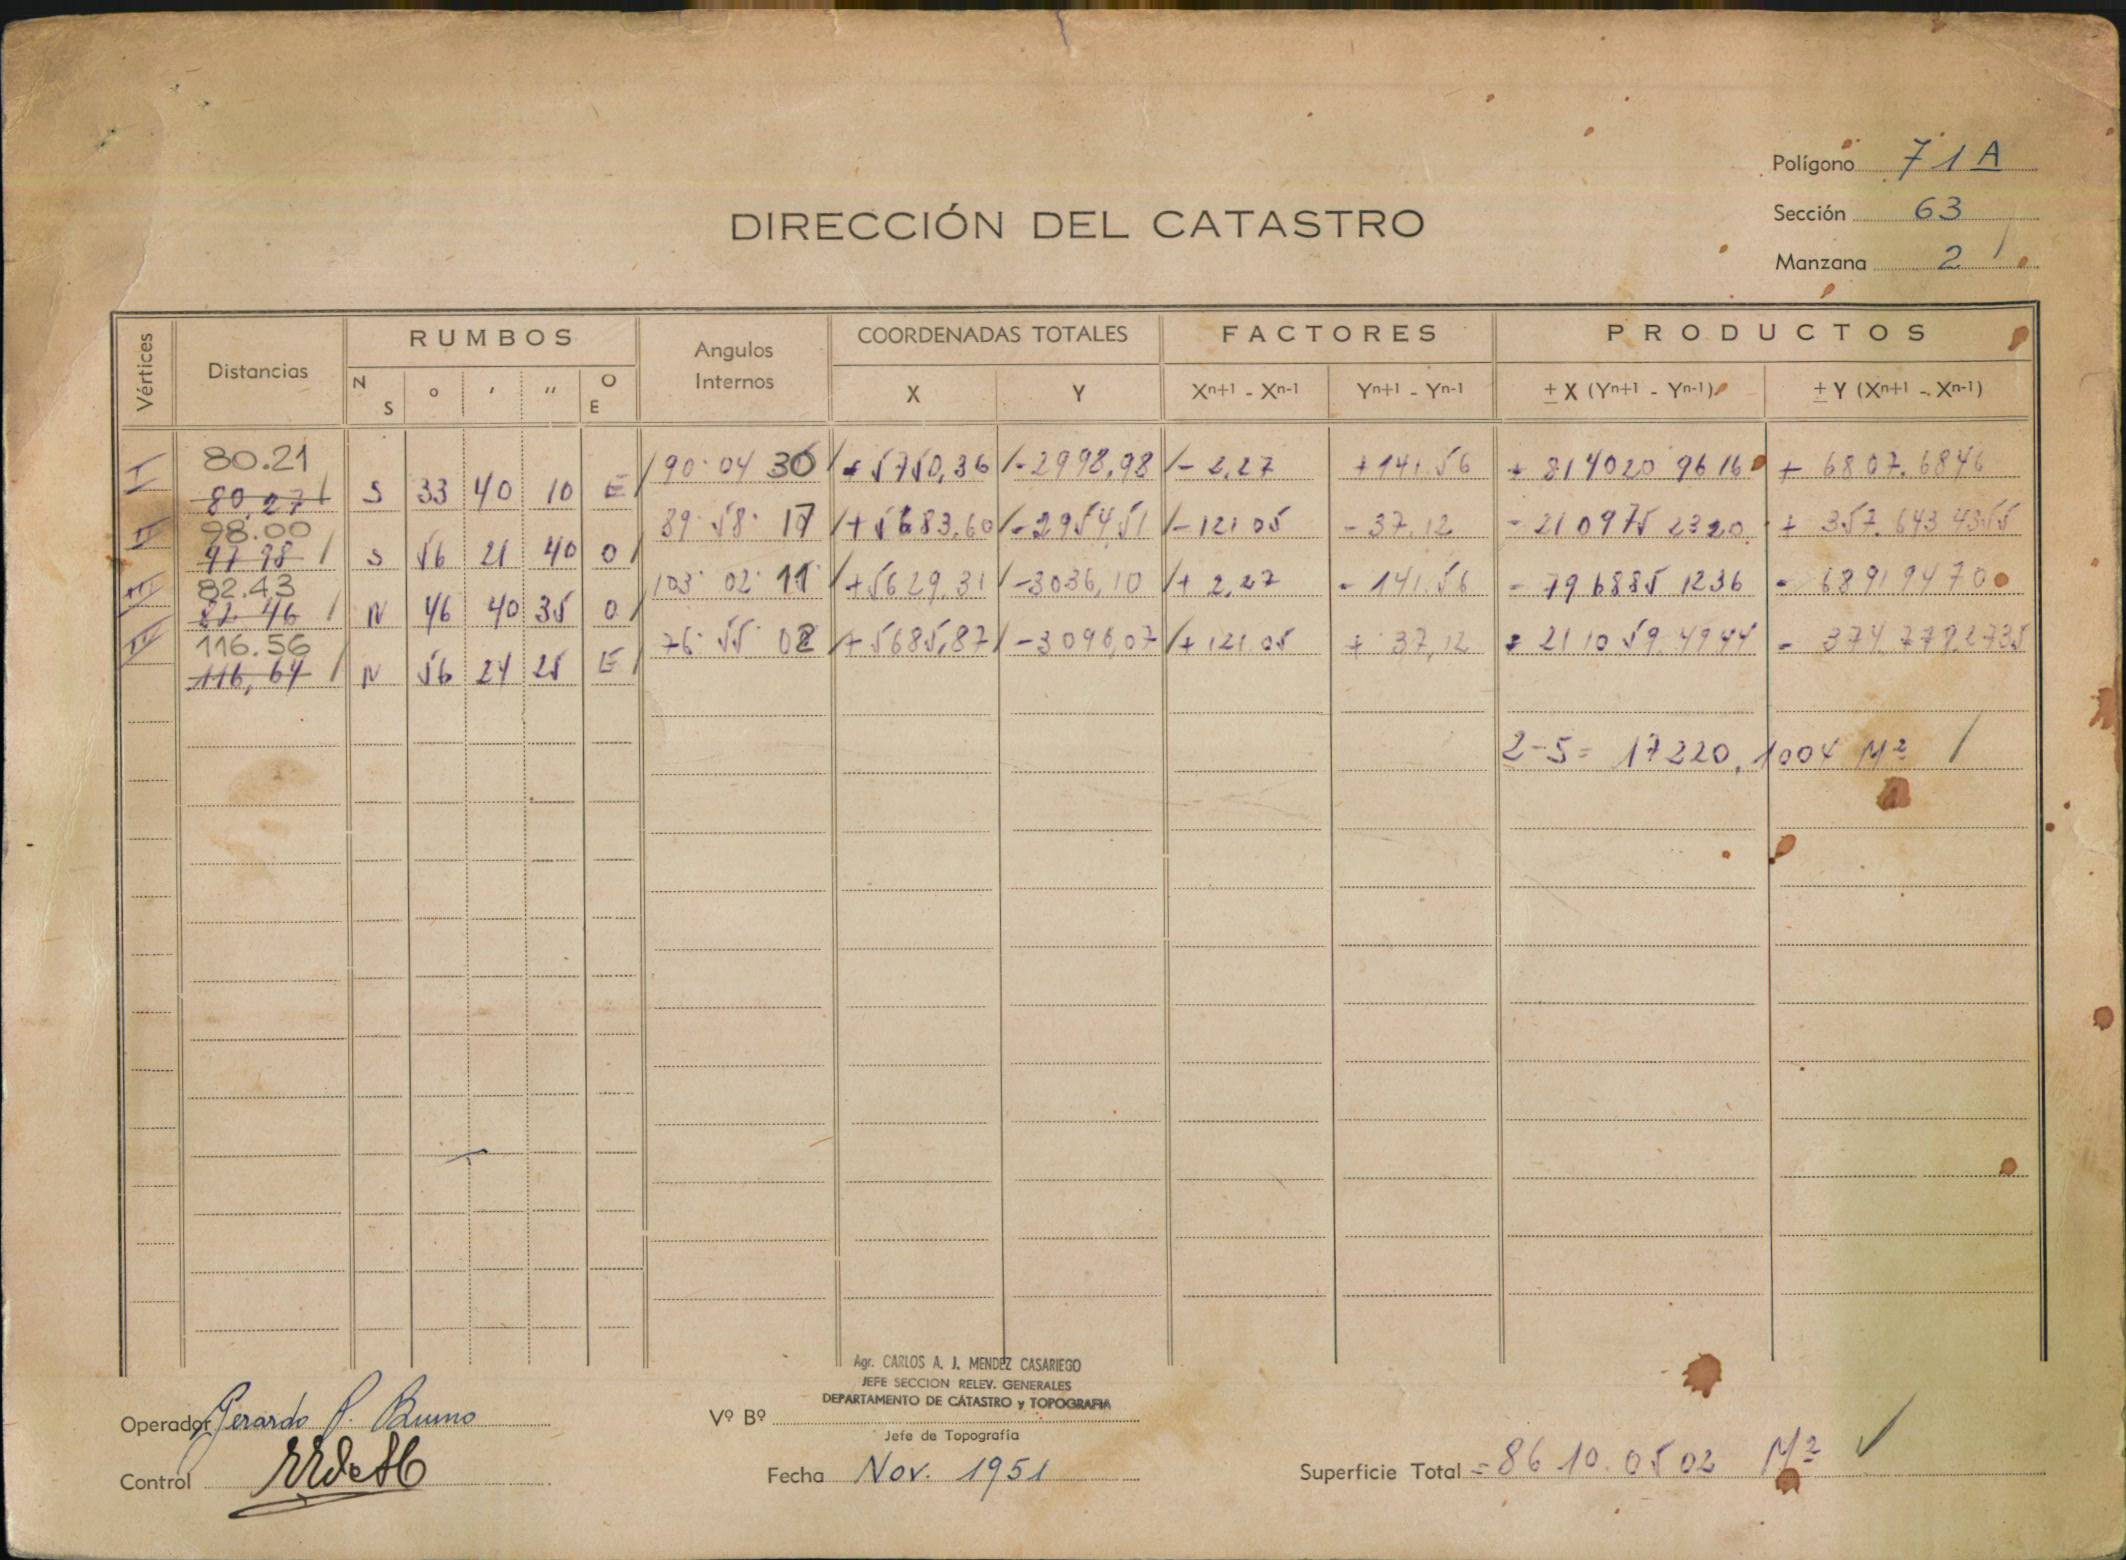 Polígono 71A
Sección 63
Manzana 2
DIRECCIÓN DEL CATASTRO
Vértices Distancias RUMBOS Angulos Internos COORDENADAS TOTALES FACTORES PRODUCTOS
N S ° ' " O E X Y Xn+1 - Xn-1 Yn+1 - Yn-1 ± X (Yn+1 - Yn-1) ± Y (Xn+1 - Xn-1)
I 80.21 90° 04 30 +5750,36 -2998,98 -2,27 +141.56 + 814020 9616 + 6807.6846
80,27 S 33 40 10 E
II 98.00 89° 58' 17 +5683,60 -2954,51 -121 05 -37.12 - 210975 2320 + 357.643 4355
97 98 S 56 21 40 O
III 82.43 103° 02' 11 +5629.31 -3036,10 +2,27 -141.56 - 796885 1236 - 6891 9470
82.46 N 46 40 35 O
IV 116.56 76° 55 02 +5685,87 -3096,07 +121.05 + 37,12 + 211059.4944 - 374.779.2735
116,64 N 56 24 25 E
2-S= 17220,1004 M²
Agr. CARLOS A. J. MENDEZ CASARIEGO
JEFE SECCION RELEV. GENERALES
DEPARTAMENTO DE CATASTRO y TOPOGRAFIA
Operador Gerardo P. Bruno
Vº Bº
Jefe de Topografía
Control
Fecha Nov. 1951
Superficie Total = 8610.0502 M²